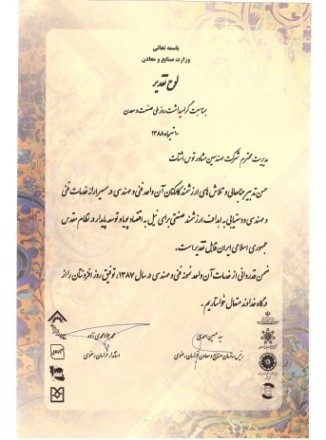 باسمه تعالی
وزارت صنایع و معادن
لوح تقدیر
بمناسبت گرامیداشت روز ملی صنعت و معدن
۱۰ تیرماه ۱۳۸۸
مدیریت محترم شرکت مهندسین مشاور توس اشتات
حسن تدبیر جنابعالی و تلاش های ارزشمند کارکنان آن واحد فنی و مهندسی در مسیر ارائه خدمات فنی
و مهندسی و دستیابی به اهداف ارزشمند صنعتی برای نیل به اقتصاد پویا و توسعه پایدار در نظام مقدس
جمهوری اسلامی ایران قابل تقدیر است.
ضمن قدردانی از خدمات آن واحد نمونه فنی و مهندسی در سال ۱۳۸۷، توفیق روز افزونتان را از
درگاه خداوند متعال خواستاریم.
سید حسین احمدی
رئیس سازمان صنایع و معادن خراسان رضوی
محمد جواد محمدی زاده
استاندار خراسان رضوی